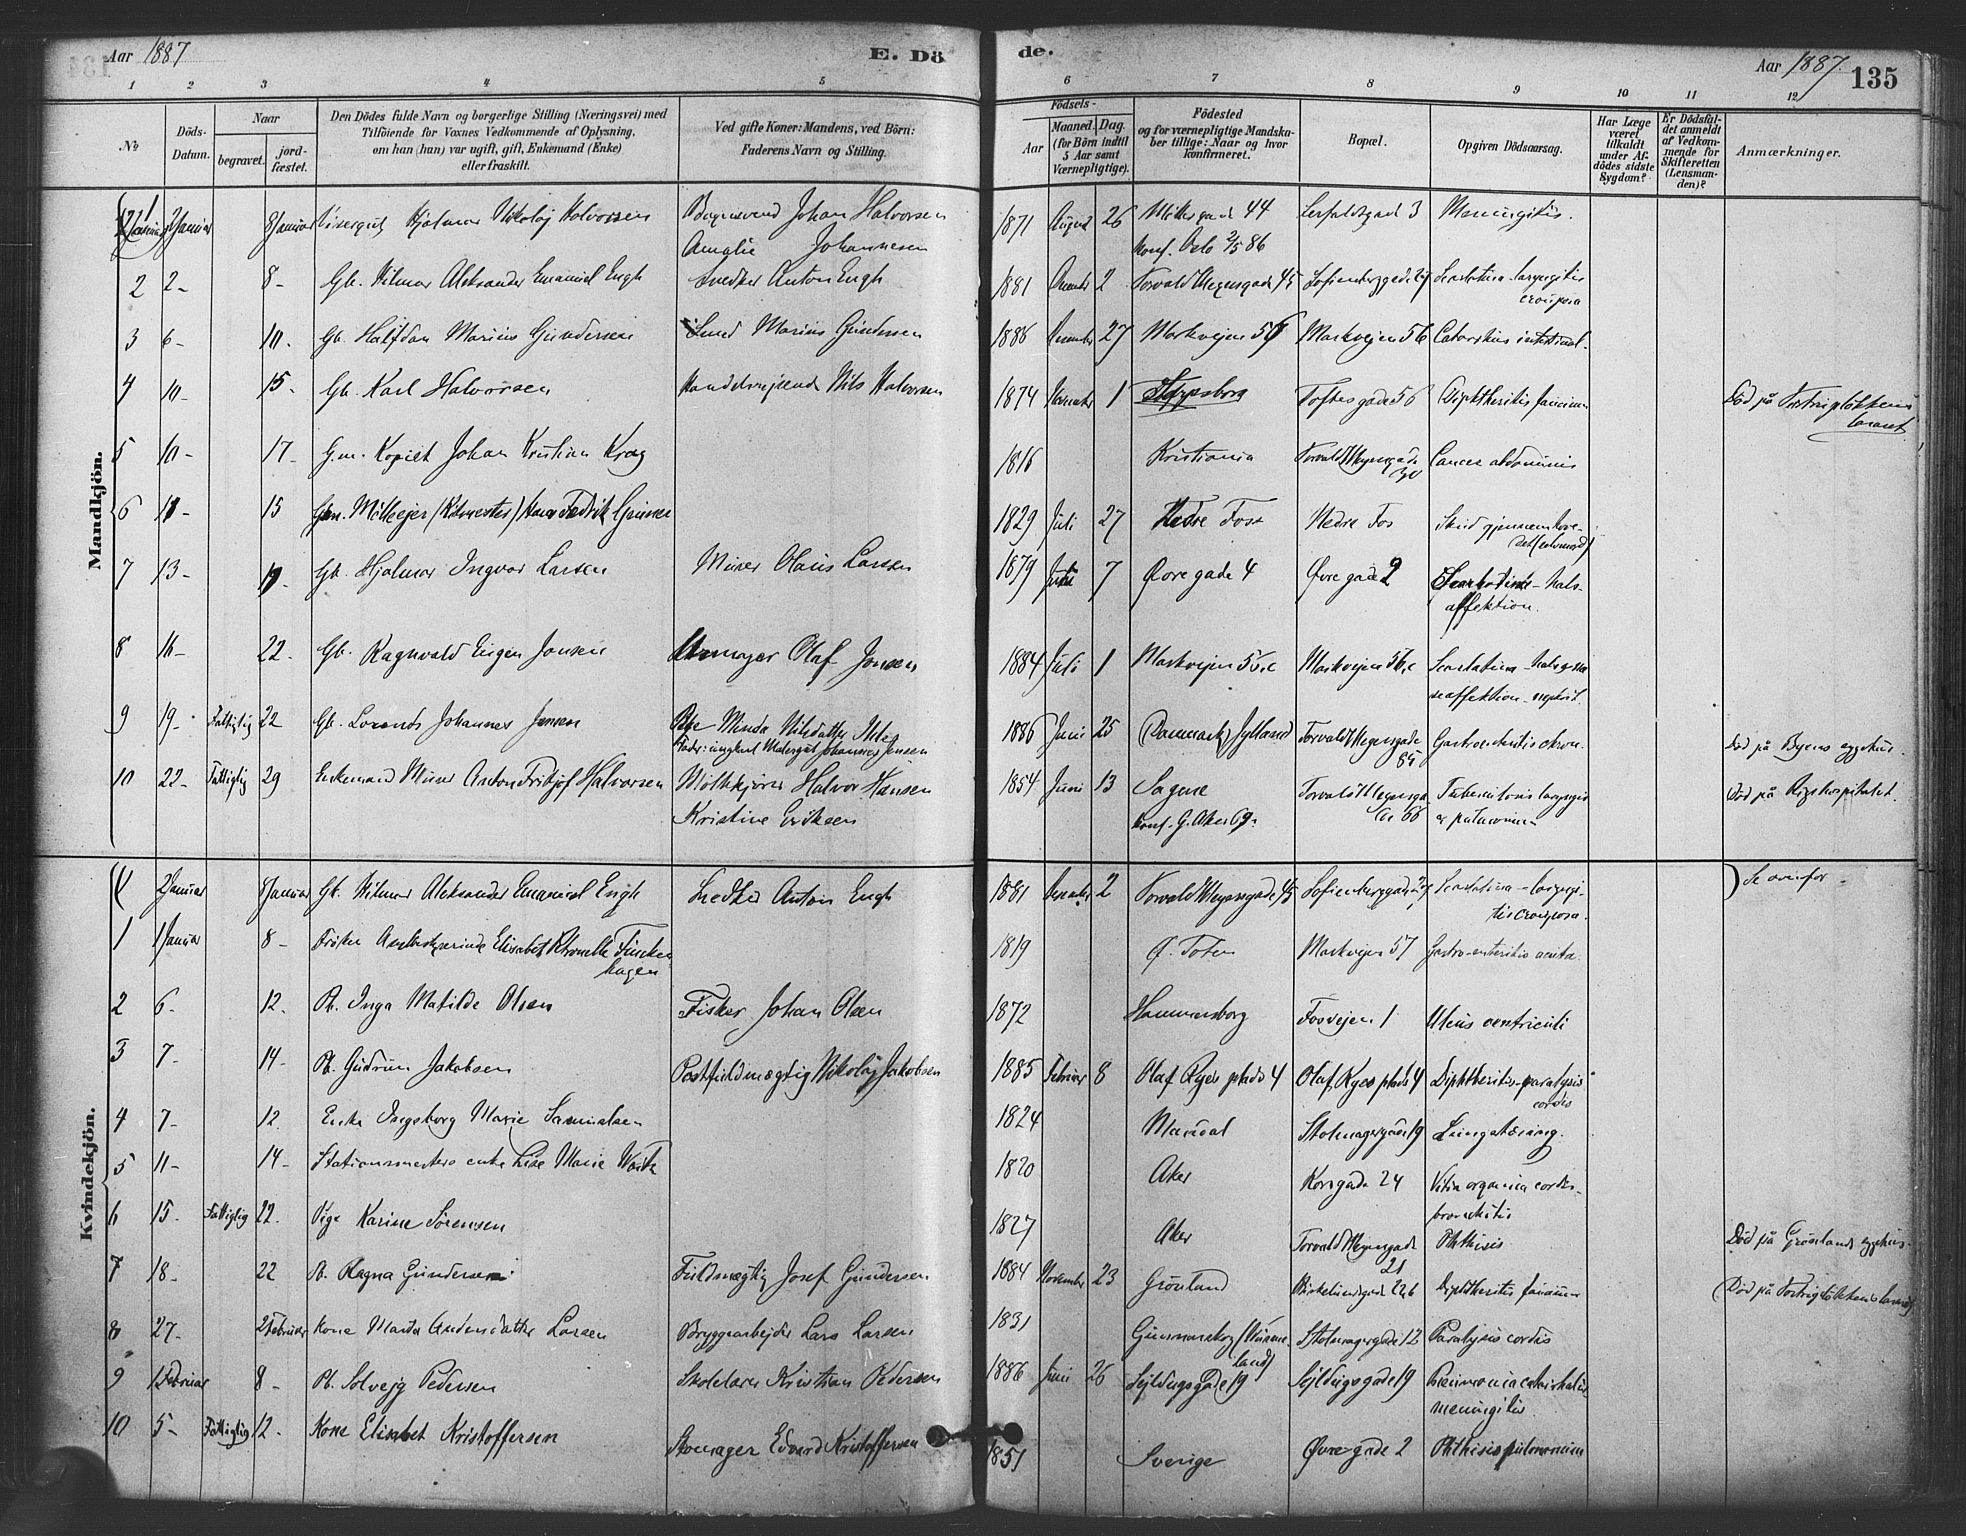 Aar 1887
E. Dö
de.
Aar 1887.
135
1 2 3 4 5 6 7 8 9 10 11 12
No
Döds-Datum.
Naar
begravet.
jord-fæstet.
Den Dödes fulde Navn og borgerlige Stilling (Næringsvei) med
Tilföiende for Voxnes Vedkommende af Oplysning,
om han (hun) var ugift, gift, Enkemand (Enke)
eller fraskilt.
Ved gifte Koner: Mandens, ved Börn:
Faderens Navn og Stilling.
Födsels-
Aar
Maaned. Dag.
(for Börn indtil
5 Aar samt
Værnepligtige).
Födested
og for værnepligtige Mandska-
ber tillige: Naar og hvor
konfirmeret.
Bopæl.
Opgiven Dödsaarsag.
Har Læge
været
tilkaldt
under Af-
dödes sidste
Sygdom?
Er Dödsfal-
det anmeldt
af Vedkom-
mende for
Skifteretten
(Lensman-
den)?
Anmærkninger.
Mandkjön.
1 2 Januar 8 Januar Visergut Hjalmar Nikolaj Halvorsen Johan Halvorsen 1871 August 26 Møllergade 44 3 Meningitis.
Amalie Johannesen Konf. Oslo 2/5 86
2 2- 8- Gb. Hilmar Aleksander Emanuel Engh Snedker Anton Engh 1881 December 2 Torvald Meyersgade 45 Sofienberggade Scarlatina-laryngitis
crouposa
3 6- 10- Gb. Halfdan Marius Gundersen Smed Marius Gundersen 1886 December 27 Markvejen 56 Markvejen 56 Catarrhus intestinal.
4 10- 15- Gb. Karl Halvorsen Handelsrejsende Nils Halvorsen 1874 November 1 Toftesgade 56 Diphtheritis faucium Død på
lasaret
5 10- 17- G.m. Kopist Johan Kristian Krag 1816 Kristiania Torvald Meyersgade Cancer abdominis
30
6 11- 15 Gm. Mølleejer Hans Fredrik Grüner 1829 Juli 27 Nedre Foss Nedre Fos Skud gjennem hove-
det
7 13- 19- Gb. Hjalmar Ingvar Larsen Murer Olaus Larsen 1879 7 Øvre gade 4 Øvre gade 2 Scarlatina-hals-
affektion.
8 16- 22- Gb. Ragnvald Eugen Jonsen Urmager Olaf Jonsen 1884 Juli 1 Markvejen 56 c Markvejen 56 c Scarlatina-
affektion-nephrit.
9 19- Fattiglig 22 Gb. Johannes Jensen Pige Minda Nilsdatter 1886 Juni 25 (Danmark) Jylland Torvald Meyersgade Gastroenteritis chron. Død på Byens sygehus.
Fader: ungkarl Johannes Jensen 85
10 22- Fattiglig 29 Enkemand Murer Anton Fritjof Halvorsen Halvor Hansen 1854 Juni 13 Sagene Torvald Meyersga- Tuberculosis laryngis Død på Rigshospitalet.
Kristine Eriksen Konf. G. Aker 69. de 66 et pulmonum
Kvindekjön.
2 Januar 8 Januar Gb. Hilmar Aleksander Emanuel Engh Snedker Anton Engh 1881 December 2 Torvald Meyersgade 45 Sofienberggade Scarlatina-laryngi- Se ovenfor
tis crouposa.
1 1 Januar 8- Frøken Elisabet Petronelle Fincken- 1819 Ø. Toten Markvejen 57 Gastro-enteritis acuta.
hagen
2 6- 12- Pb. Inga Matilde Olsen Fisker Johan Olsen 1872 Hammersborg Fosvejen 1 Ulcus ventriculi
3 7- 14- Pb. Gudrun Jakobsen Postfuldmægtig Nikolaj Jakobsen 1885 Februar 8 Olaf Ryes plads 4 Olaf Ryes plads 4 Diphtheritis-paralysis
cordis
4 7- 12 Enke Ingeborg Marie Samuelsen 1824 Mandal Stolmagergade 19 Lungetæring.
5 11- 14- Stationsmesters enke Lise Marie 1820 Aker Korsgade 24 Vitia organica cordis-
bronchitis
6 15. Fattiglig 22. Pige Karine Sørensen 1827 Aker Torvald Meyersgade Phthisis Død på Grønlands sygehus.
21
7 18- 22 Pb. Ragna Gundersen Fuldmægtig Josef Gundersen 1884 November 23 Grønland Birkelundsgade Diphtheritis faucium Død på
8 27- 2 Februar Kone Marta Andersdatter Larsen Bryggearbejder Lars Larsen 1831 Stolmagergade 12 Paralysis cordis
land)
9 1 Februar 8- Pb. Solvejg Pedersen Skolelærer Kristian Pedersen 1886 Juni 26 Sejldugsgade 19 Sejldugsgade 19 Pneumonia catarrhalis
meningitis
10 5- Fattiglig 12- Kone Elisabet Kristoffersen Skomager Edvard Kristoffersen 1851 Sverige Øvregade 2 Phthisis pulmonum